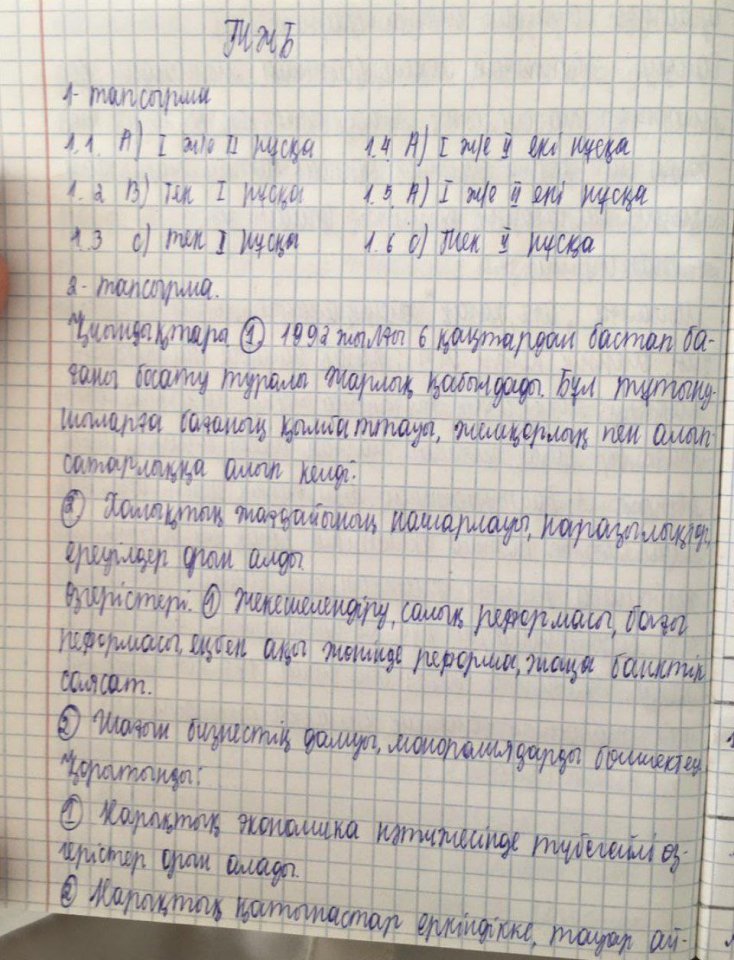 ТЖБ
1- тапсырма
1.1. А) I ж/е II нұсқа 1.4 А) I ж/е II екі нұсқа
1.2 В) Тек I нұсқа 1.5. А) I ж/е II екі нұсқа
1.3 с) тек I нұсқа 1.6 с) Тек II нұсқа
2- тапсырма.
Қиындықтары ① 1992 жылғы 6 қаңтардан бастап ба-
ғаны босату туралы Жарлық қабылдады. Бұл тұтыну-
шыларға бағаның қымбаттауы, жемқорлық пен алып
сатарлыққа алып келді.
② Халықтың жағдайының нашарлауы, наразылықтар,
ереуілдер орын алды
Өзгерістері. ① Жекешелендіру, салық реформасы, баға
реформасы, еңбек ақы жөнінде реформа, жаңа банктік
саясат.
② Шағын бизнестің дамуы, монополиядарды бөлшектеу
Қорытынды:
① Нарықтық экономика нәтижесінде түбегейлі өз-
герістер орын алады.
② Нарықтық қатынастар еркіндікке, тауар ай-